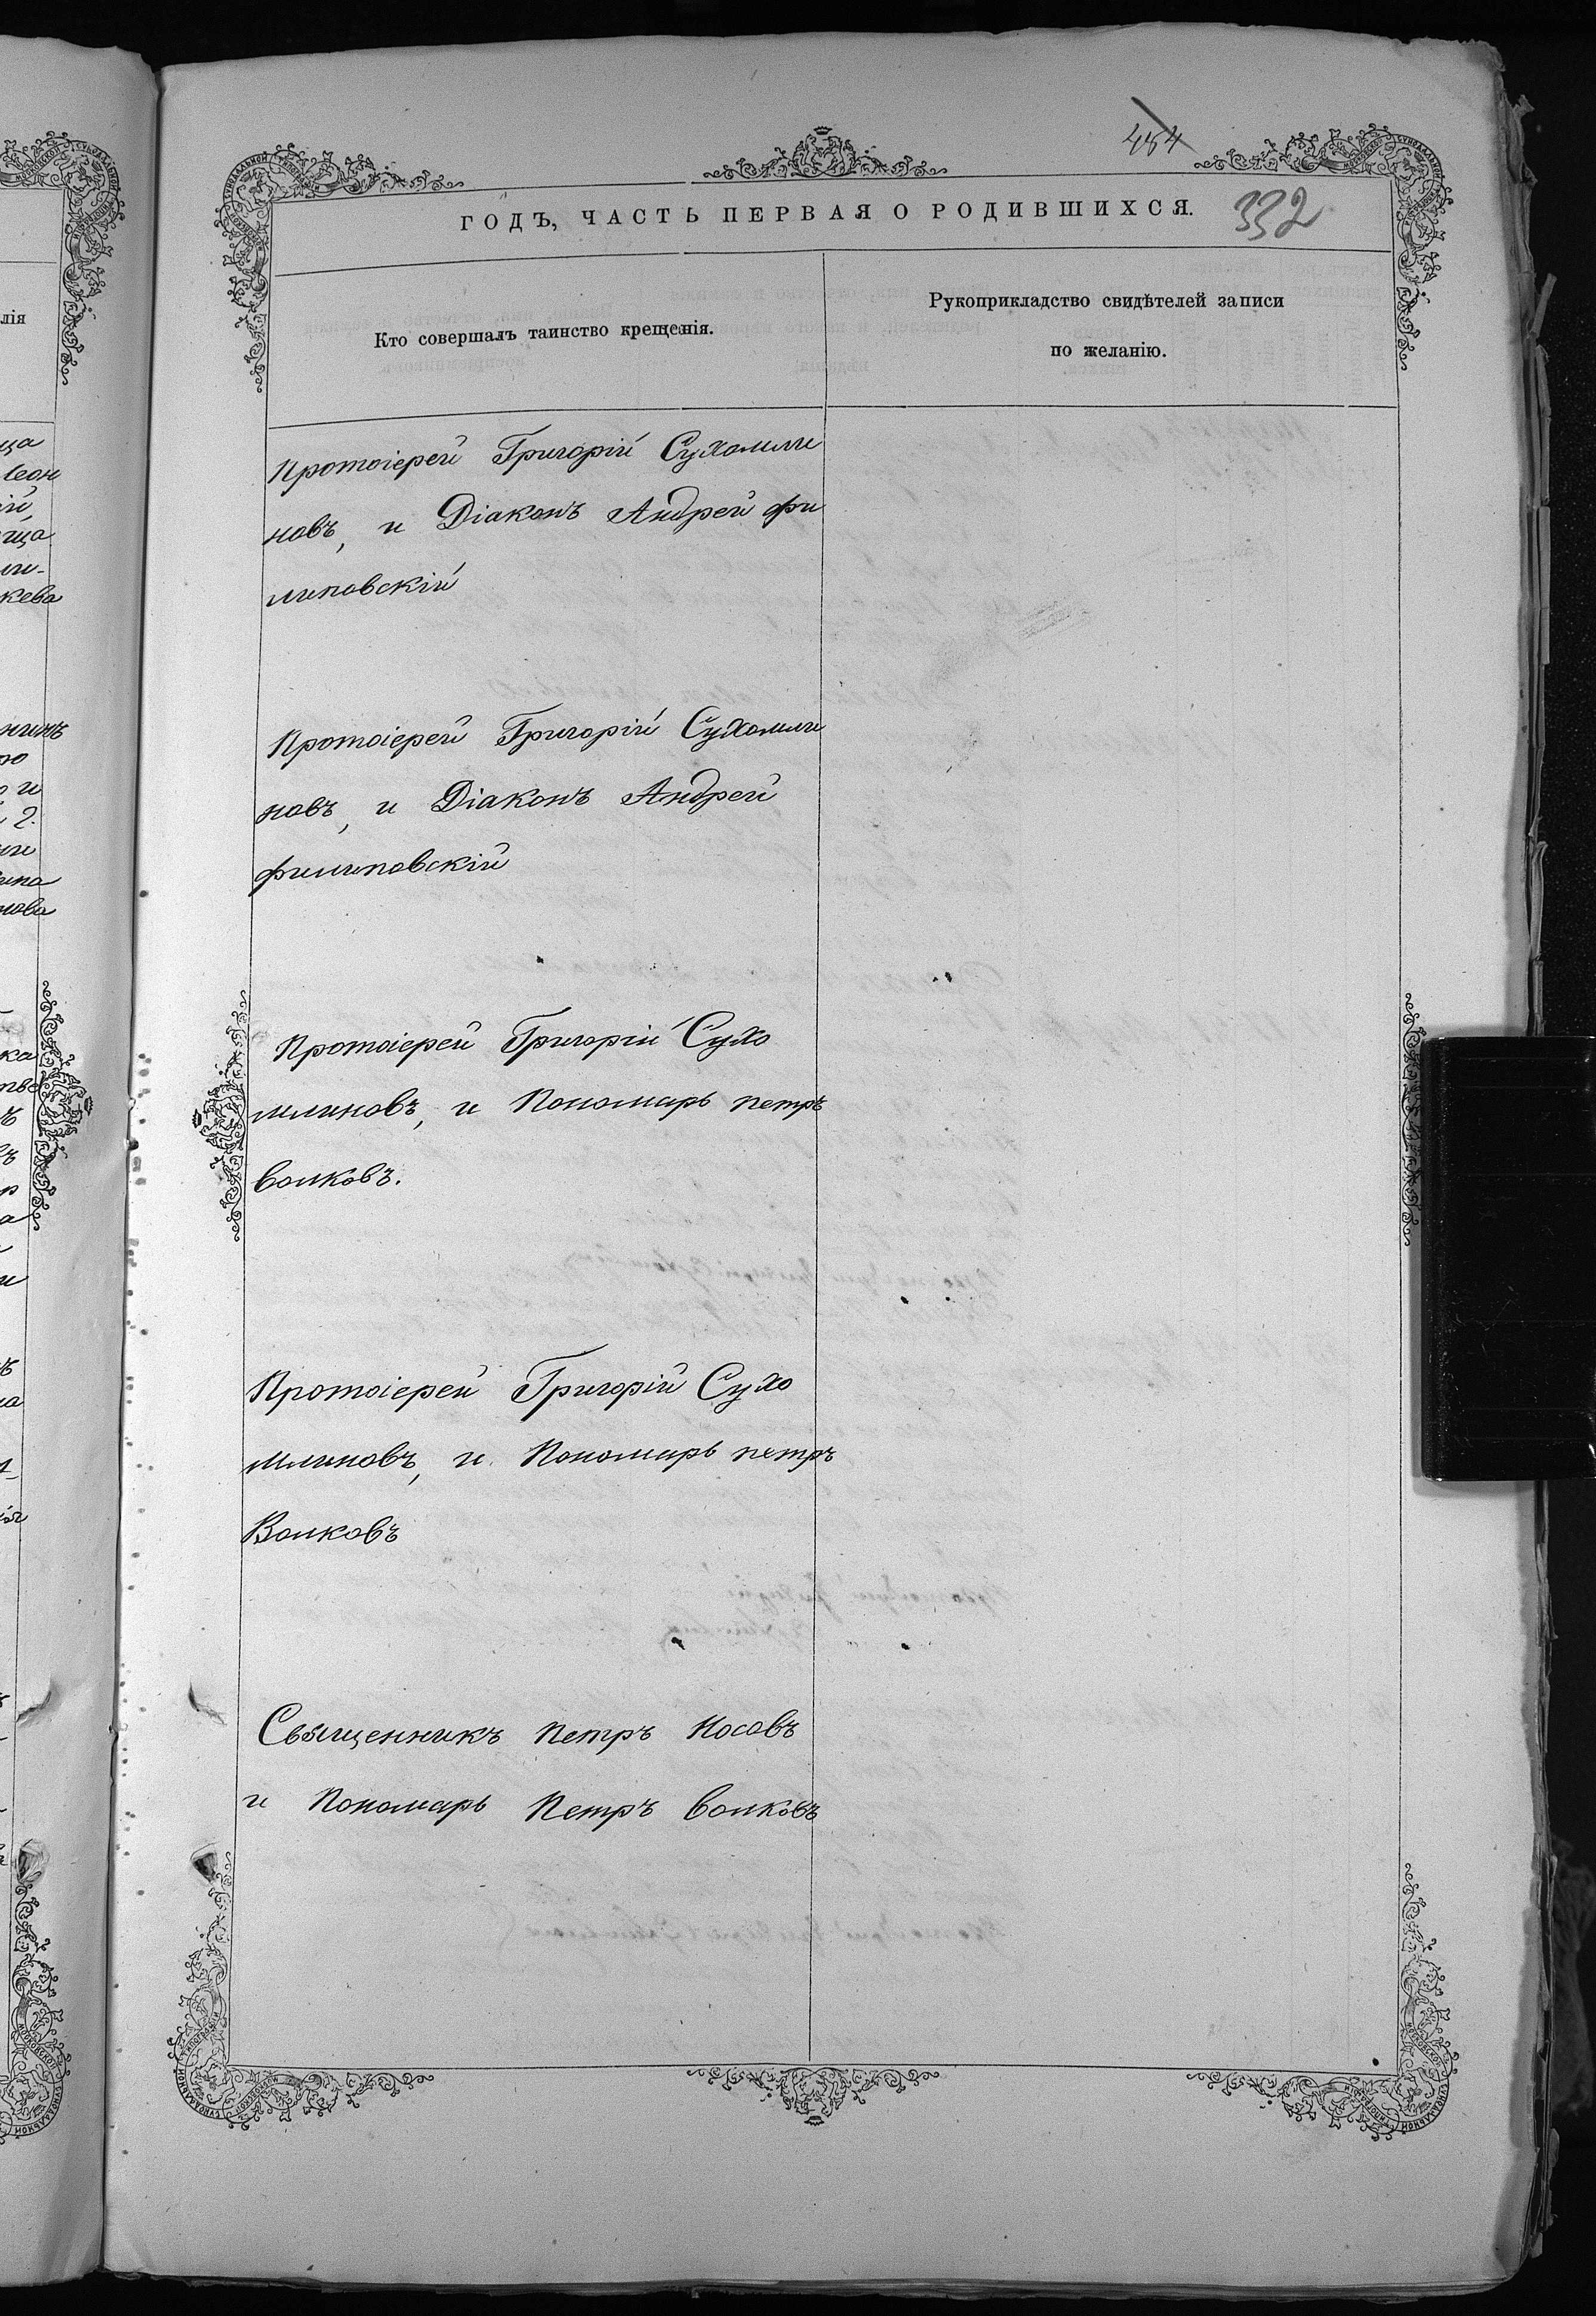 454
ГОДЪ, ЧАСТЬ ПЕРВАЯ О РОДИВШИХСЯ.
332
Кто совершалъ таинство крещенія.
Рукоприкладство свидѣтелей записи
по желанію.
Протоіерей Григорій Сухомли
новъ, и Діаконъ Андрей фи
липовскій
Протоіерей Григорій Сухомли
новъ, и Діаконъ Андрей
филиповскій
Протоіерей Григорій Сухо
млиновъ, и Пономарь петръ
волковъ.
Протоіерей Григорій Сухо
млиновъ, и Пономарь петръ
Волковъ
Священникъ Петръ Носовъ
и Пономарь Петръ волковъ
лія
ща
кева
нова